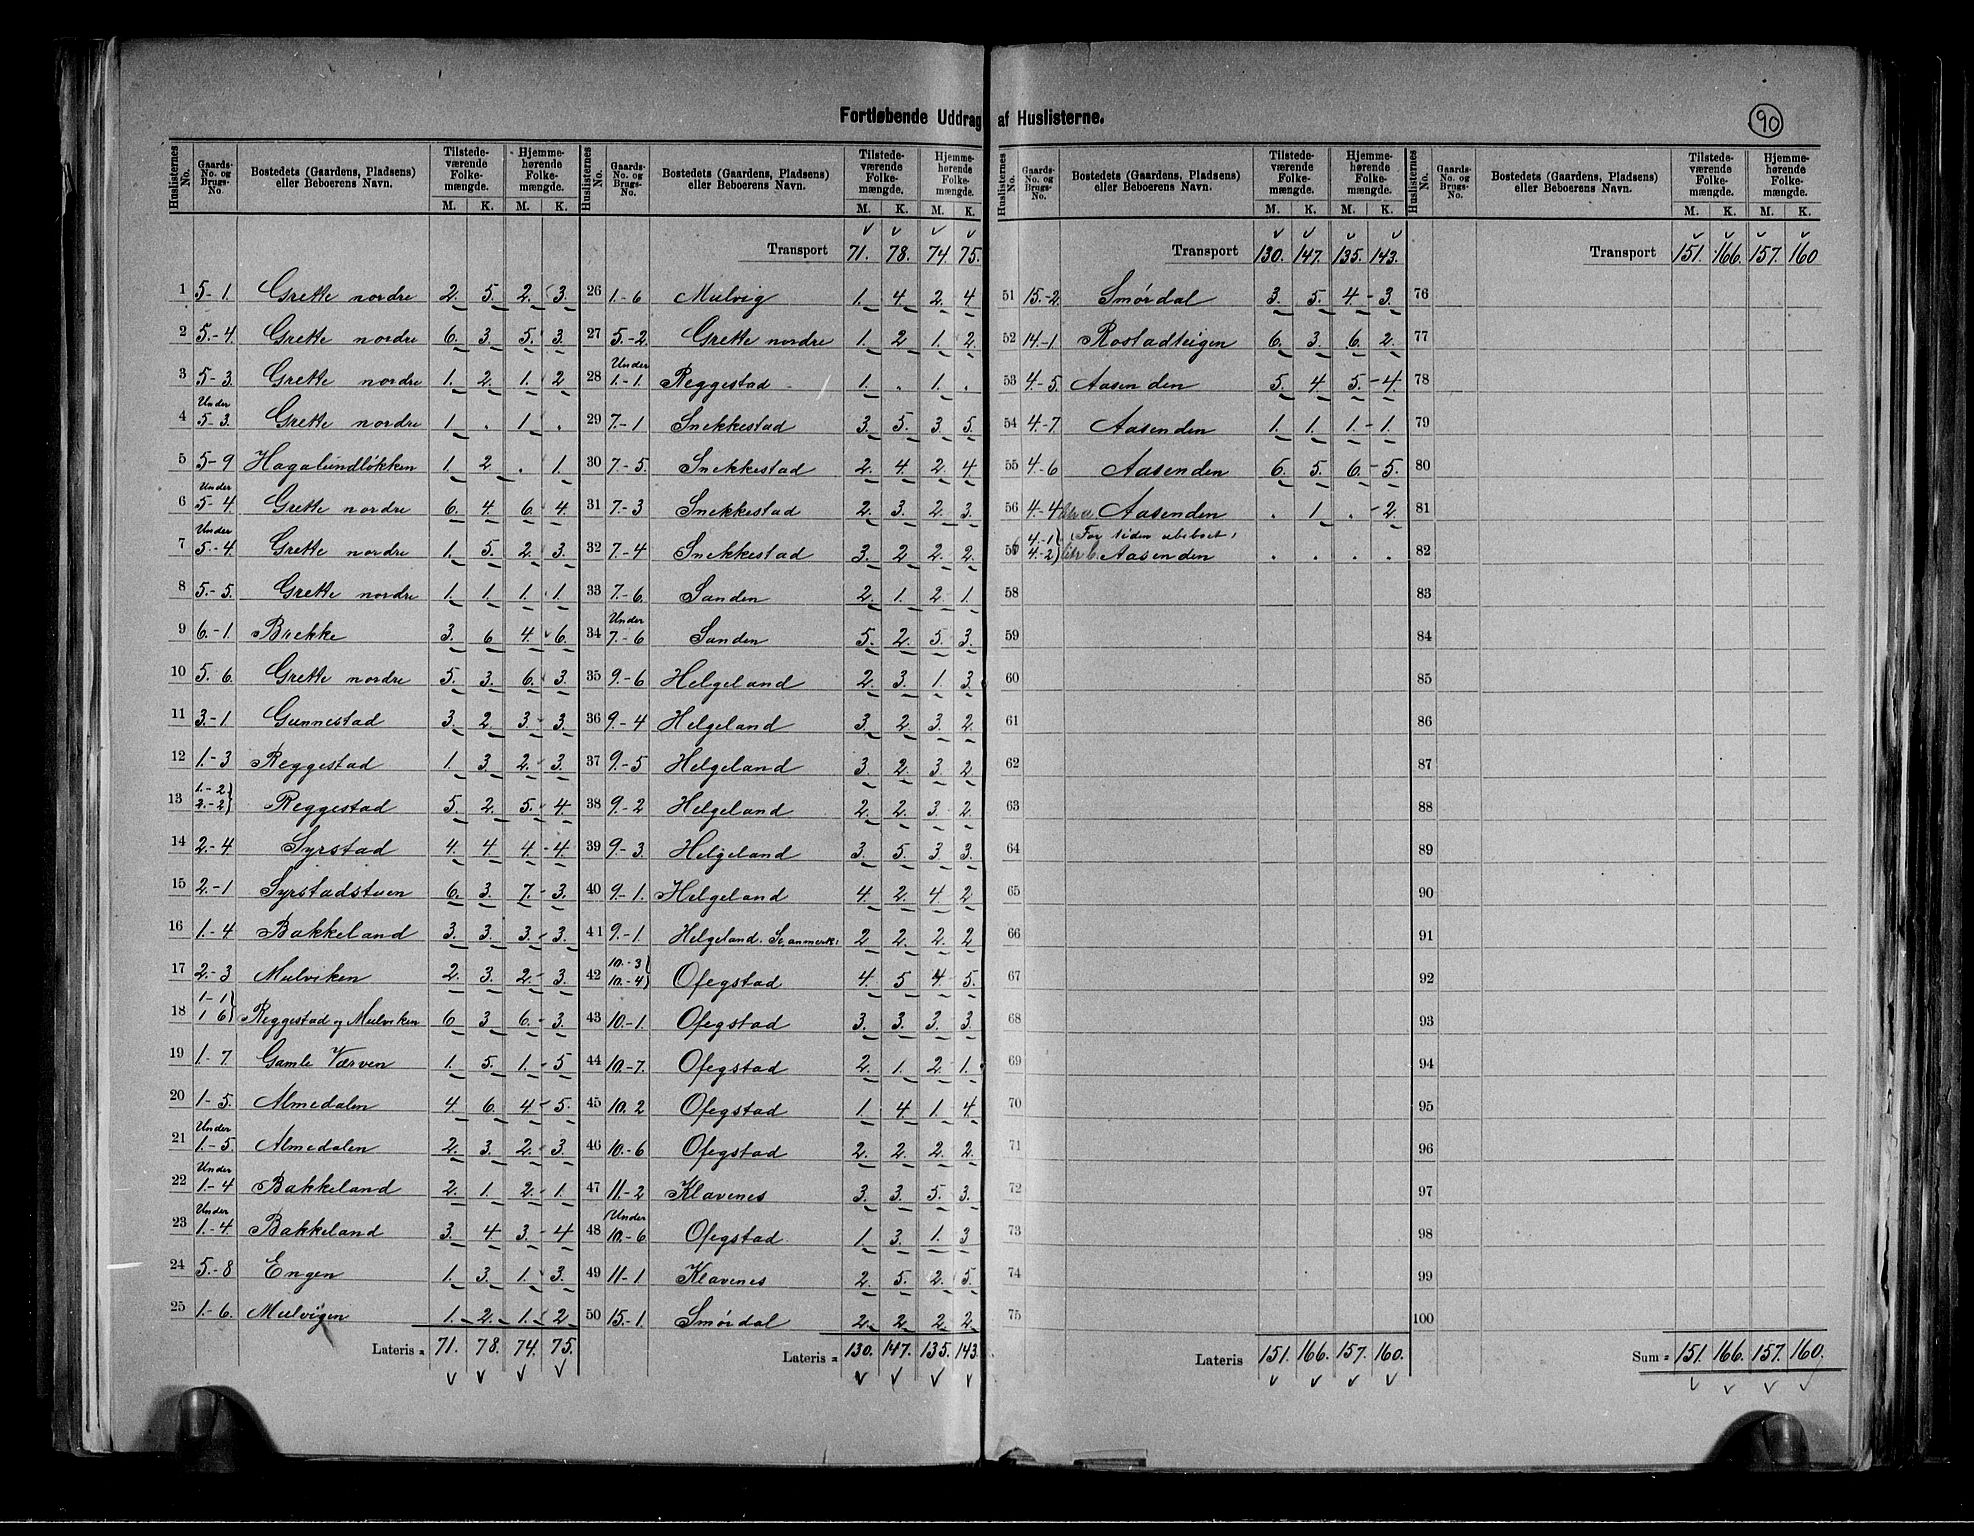 Fortløbende Uddrag af Huslisterne.
90
Huslisternes No. | Gaards-No. og Brugs-No. | Bostedets (Gaardens, Pladsens) eller Beboerens Navn. | Tilstedeværende Folkemængde. M. K. | Hjemmehørende Folkemængde. M. K.
1 5-1. Grette nordre 2. 5. 2. 3.
2 5-4. Grette nordre 6. 3. 5. 3.
3 5-3. Grette nordre 1. 2. 1. 2
4 Under 5-3. Grette nordre 1. . 1. .
5 5-9 Hagalundløkken 1. 2 . 1.
6 Under 5-4 Grette nordre 6. 4. 6. 4.
7 Under 5.-4 Grette nordre 1. 5. 2. 3.
8 5.-5. Grette nordre 1. 1. 1. 1.
9 6.-1. Brekke 3. 6 4. 6.
10 5. 6. Grette nordre 5. 3. 6. 3.
11 3.-1 Gunnestad 3. 2. 3. 3.
12 1.-3 Reggestad 1. 3. 2. 3.
13 1.-2 2.-2 } Reggestad 5. 2. 5. 4.
14 2.-4. Syrstad 4. 4 4. 4.
15 2.-1 Syrstadstuen 6. 3. 7. 3.
16 1.-4 Bakkeland 3. 3. 3. 3.
17 2.-3 Mulviken 2. 3. 2. 3.
18 1-1 1 6 } Reggestad og Mulviken 6 3 6. 3.
19 1-7 Gamle Værven 1. 5. 1. 5
20 1-5. Almedalen 4. 6. 4. 5.
21 Under 1.-5. Almedalen 2. 3. 2. 3.
22 Under 1.-4 Bakkeland 2. 1. 2. 1.
23 Under 1.-4 Bakkeland 3. 4 3. 4
24 5.-8 Engen 1. 3. 1. 3.
25 1.-6. Mulvigen 1. 2. 1. 2
Lateris = 71. 78. 74. 75.
Huslisternes No. | Gaards-No. og Brugs-No. | Bostedets (Gaardens, Pladsens) eller Beboerens Navn. | Tilstedeværende Folkemængde. M. K. | Hjemmehørende Folkemængde. M. K.
Transport 71. 78. 74. 75.
26 1.-6 Mulvig 1. 4. 2. 4
27 5.-2. Grette nordre 1. 2 1. 2.
28 Under 1.-1. Reggestad 1. . 1. .
29 7.-1 Snekkestad 3. 5. 3. 5.
30 7.-5. Snekkestad 2. 4. 2. 4
31 7.-3 Snekkestad 2. 3. 2. 3.
32 7.-4 Snekkestad 3. 2 2. 2.
33 7.-6. Sanden 2. 1. 2 1.
34 Under 7.-6 Sanden 5. 2. 5. 3.
35 9.-6 Helgeland 2. 3. 1. 3.
36 9.-4 Helgeland 3. 2 3. 2.
37 9.-5 Helgeland 3. 2. 3. 2
38 9.-2 Helgeland 2. 2. 3. 2.
39 9.-3 Helgeland 3. 5. 3 3.
40 9.-1. Helgeland 4. 2. 4. 2
41 9.-1. Helgeland. Se anmerk: 2 2. 2. 2
42 10.-3 10.-4 } Ofegstad 4. 5 4 5.
43 10.-1. Ofegstad 3. 3. 3. 3.
44 10.-7. Ofegstad 2. 1. 2. 1.
45 10. 2 Ofegstad 1. 4. 1. 4.
46 10.-6 Ofegstad 2. 2. 2. 2.
47 11.-2 Klavenes 3. 3. 5. 3.
48 Under 10.-6 Ofegstad 1. 3. 1. 3
49 11.-1 Klavenes 2. 5. 2. 5.
50 15.-1. Smørdal 2. 2. 2 2
Lateris = 130. 147. 135. 143
Huslisternes No. | Gaards-No. og Brugs-No. | Bostedets (Gaardens, Pladsens) eller Beboerens Navn. | Tilstedeværende Folkemængde. M. K. | Hjemmehørende Folkemængde. M. K.
Transport 130. 147. 135. 143.
51 15.-2. Smørdal 3. 5. 4 3.
52 14.-1 Rostadteigen 6. 3. 6. 2.
53 4.-5. Aasenden 5. 4 5. 4.
54 4.-7 Aasenden 1. 1. 1. 1.
55 4.-6 Aasenden 6. 5. 6. 5.
56 4.-4 litr. a. Aasenden . 1. . 2.
57 4.-1 4.-2 } (For tiden ubeboet) litr b. Aasenden . . . .
58
59
60
61
62
63
64
65
66
67
68
69
70
71
72
73
74
75
Lateris 151. 166. 157. 160.
Huslisternes No. | Gaards-No. og Brugs-No. | Bostedets (Gaardens, Pladsens) eller Beboerens Navn. | Tilstedeværende Folkemængde. M. K. | Hjemmehørende Folkemængde. M. K.
Transport 151. 166. 157. 160
76
77
78
79
80
81
82
83
84
85
86
87
88
89
90
91
92
93
94
95
96
97
98
99
100
Sum = 151. 166. 157. 160.